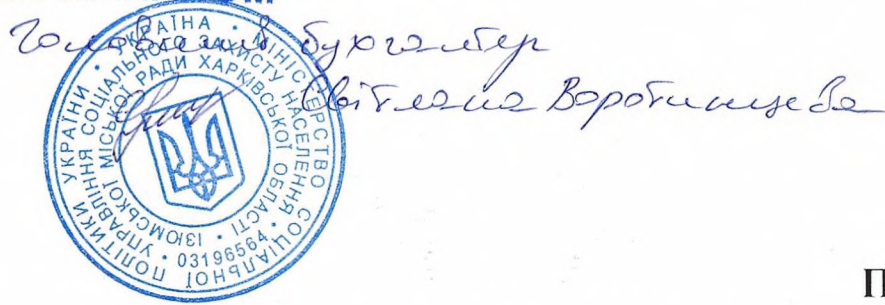 Головний бухгалтер
Світлана Воротинцева
УКРАЇНА • МІНІСТЕРСТВО СОЦІАЛЬНОЇ ПОЛІТИКИ УКРАЇНИ •
УПРАВЛІННЯ СОЦІАЛЬНОГО ЗАХИСТУ НАСЕЛЕННЯ
ІЗЮМСЬКОЇ МІСЬКОЇ РАДИ ХАРКІВСЬКОЇ ОБЛАСТІ •
• 03196564 •
П